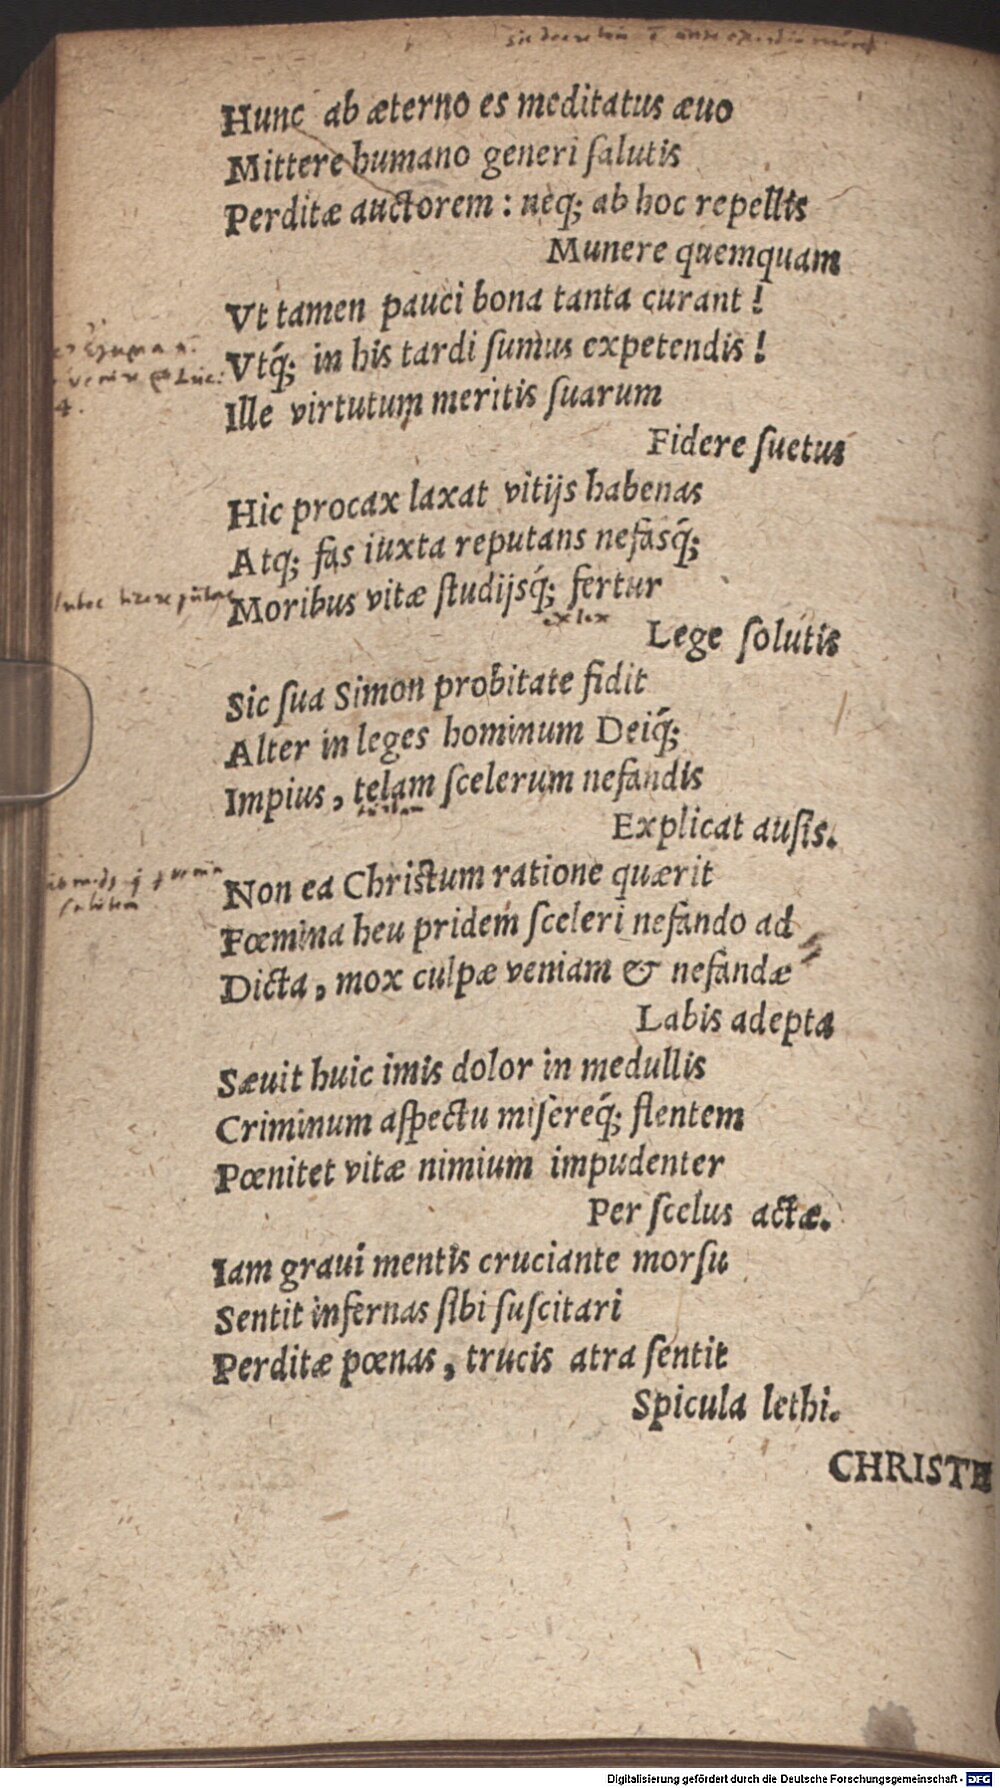 Hunc ab æterno es meditatus æuo
Mittere humano generi ſalutis
Perditæ auctorem : neq; ab hoc repellis
Munere quemquam
Vt tamen pauci bona tanta curant !
Vtq́; in his tardi ſumus expetendis !
Ille virtutum meritis ſuarum
Fidere ſuetus
Hic procax laxat vitijs habenas
Atq; fas iuxta reputans nefasq́;
Moribus vitæ ſtudijsq́; fertur
exlex
Lege ſolutis
Sic ſua Simon probitate fidit
Alter in leges hominum Deiq́;
Impius, telam ſcelerum nefandis
Explicat auſis.
Non ea Chriſtum ratione quærit
Fœmina heu pridem ſceleri nefando ad
Dicta, mox culpæ veniam & nefandæ
Labis adepta
Sæuit huic imis dolor in medullis
Criminum aſpectu miſereq́; flentem
Pœnitet vitæ nimium impudenter
Per ſcelus actæ.
Iam graui mentis cruciante morſu
Sentit infernas ſibi ſuſcitari
Perditæ pœnas, trucis atra ſentit
Spicula lethi.
CHRISTE
Digitalisierung gefördert durch die Deutsche Forschungsgemeinschaft - DFG